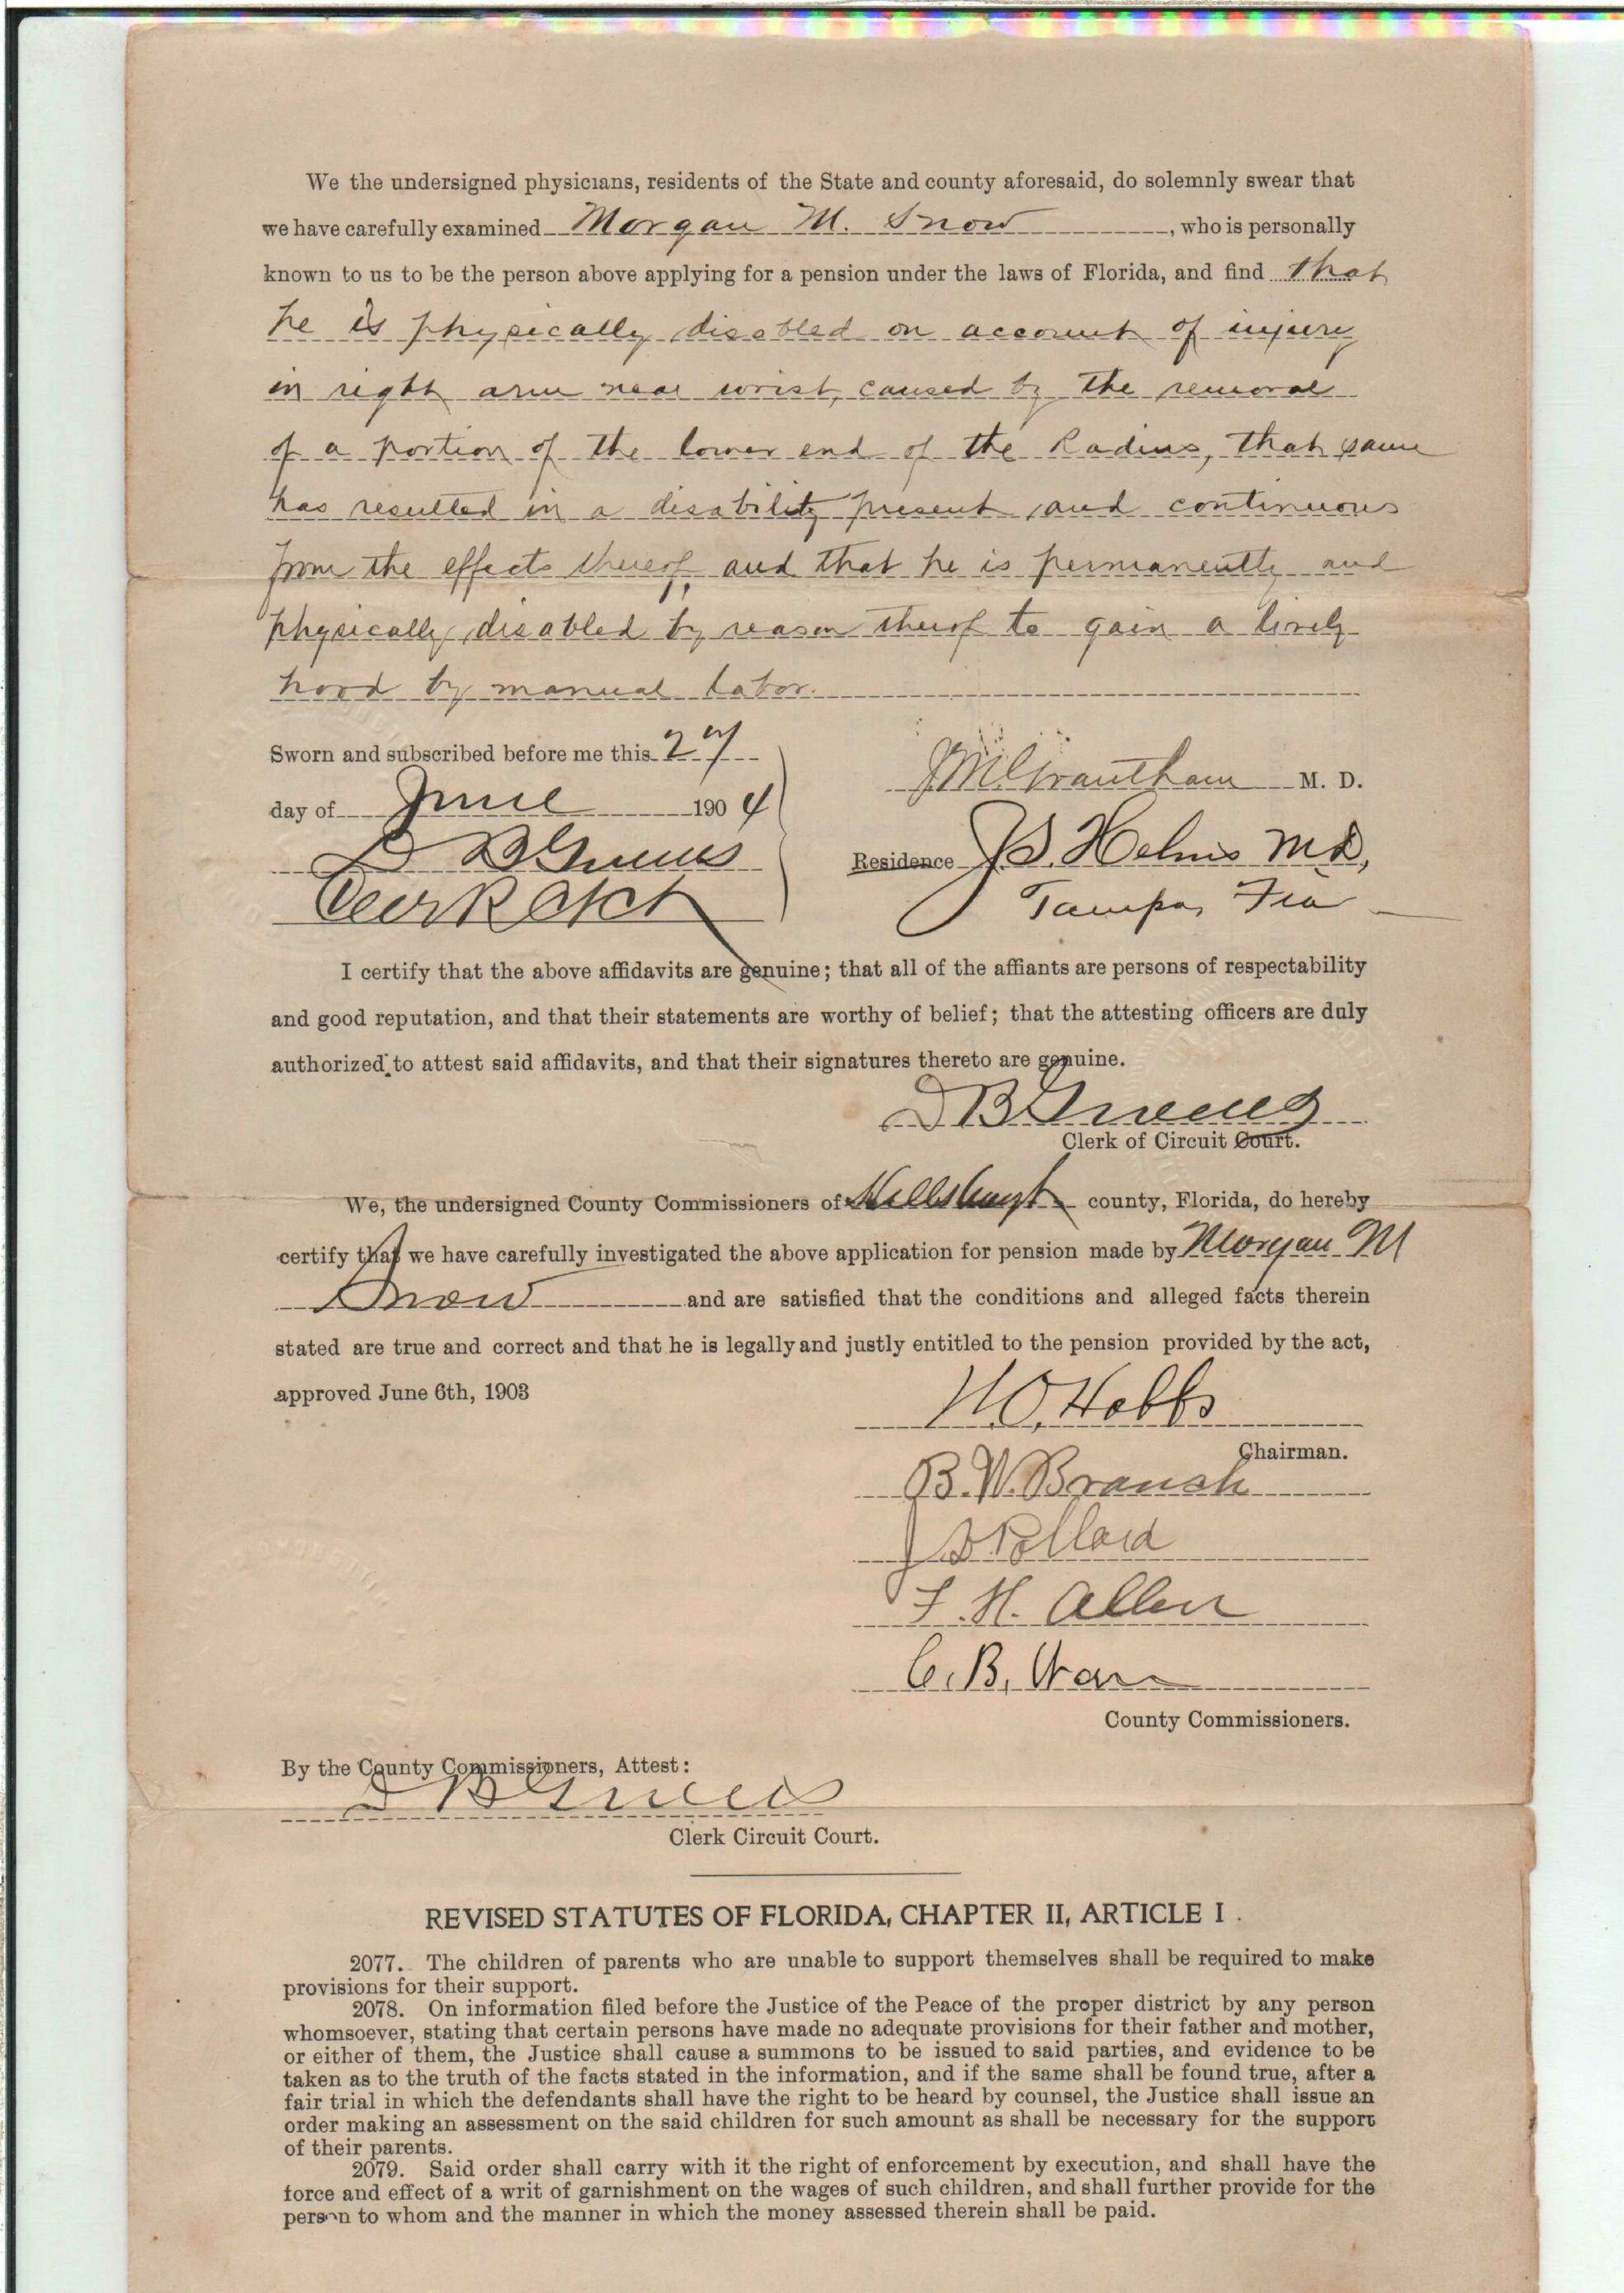 We the undersigned physicians, residents of the State and county aforesaid, do solemnly swear that
we have carefully examined Morgan M. Snow, who is personally
known to us to be the person above applying for a pension under the laws of Florida, and find that
he is physically disabled on account of injury
in right arm near wrist, caused by the removal
of a portion of the lower end of the Radius, that same
has resulted in a disability present and continuous
from the effects thereof, and that he is permanently and
physically disabled by reason therof to gain a lively
hood by manual labor.
Sworn and subscribed before me this 27
day of June 1904
J M Grantham M. D.
D B Givens
Residence J S. Helms M.D,
Clerk Ct Ct
Tampa, Fla
I certify that the above affidavits are genuine; that all of the affiants are persons of respectability
and good reputation, and that their statements are worthy of belief; that the attesting officers are duly
authorized to attest said affidavits, and that their signatures thereto are genuine.
D B Givens
Clerk of Circuit Court.
We, the undersigned County Commissioners of county, Florida, do hereby
certify that we have carefully investigated the above application for pension made by Morgan M
Snow and are satisfied that the conditions and alleged facts therein
stated are true and correct and that he is legally and justly entitled to the pension provided by the act,
approved June 6th, 1903
Hobbs
Chairman.
B. W. Branch
Pollard
F. H. Allen
C. B.
County Commissioners.
By the County Commissioners, Attest:
D B Givens
Clerk Circuit Court.
REVISED STATUTES OF FLORIDA, CHAPTER II, ARTICLE I.
2077. The children of parents who are unable to support themselves shall be required to make
provisions for their support.
2078. On information filed before the Justice of the Peace of the proper district by any person
whomsoever, stating that certain persons have made no adequate provisions for their father and mother,
or either of them, the Justice shall cause a summons to be issued to said parties, and evidence to be
taken as to the truth of the facts stated in the information, and if the same shall be found true, after a
fair trial in which the defendants shall have the right to be heard by counsel, the Justice shall issue an
order making an assessment on the said children for such amount as shall be necessary for the support
of their parents.
2079. Said order shall carry with it the right of enforcement by execution, and shall have the
force and effect of a writ of garnishment on the wages of such children, and shall further provide for the
person to whom and the manner in which the money assessed therein shall be paid.